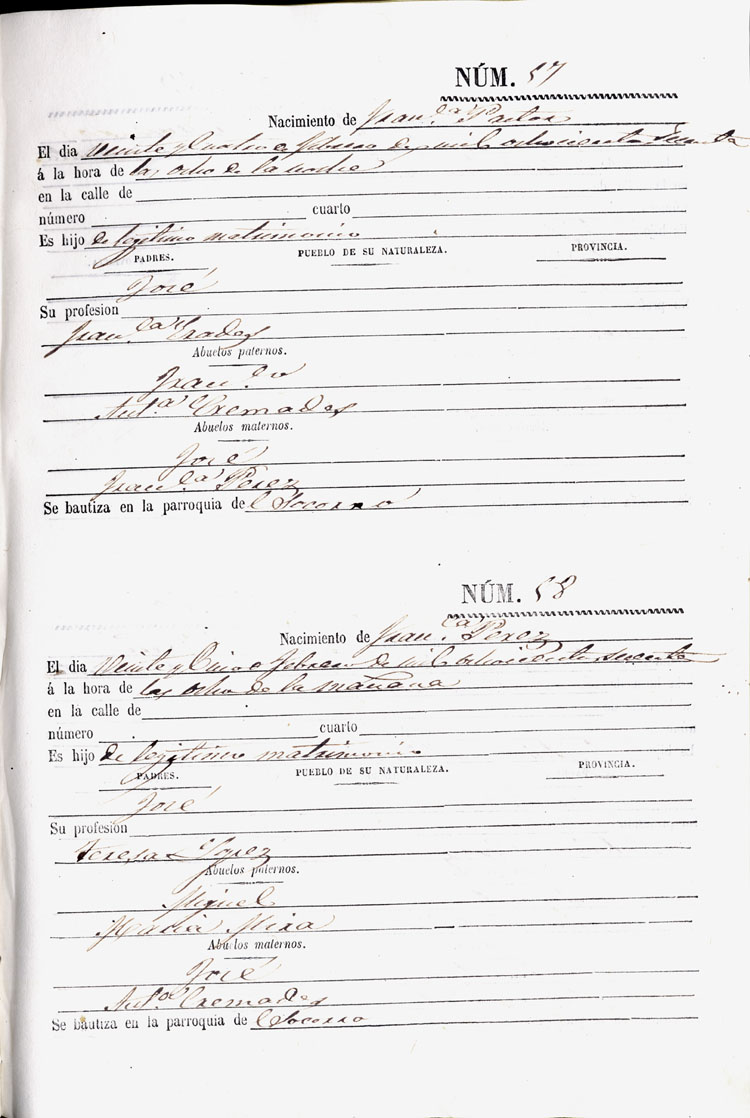 NÚM. 57
Nacimiento de Fran.ca Pastor
El dia veinte y cuatro febrero de mil ochocientos sesenta
á la hora de las ocho de la noche
en la calle de
número cuarto
Es hijo de legitimo matrimonio
PADRES. PUEBLO DE SU NATURALEZA. PROVINCIA.
José
Su profesion
Fran.ca Prades
Abuelos paternos.
Fran.co
Ant.a Cremades
Abuelos maternos.
José
Fran.ca Perez
Se bautiza en la parroquia de l Socorro
NÚM. 58
Nacimiento de Fran.ca Perez
El dia veinte y cinco febrero de mil ochocientos sesenta
á la hora de las ocho de la mañana
en la calle de
número cuarto
Es hijo de legitimo matrimonio
PADRES. PUEBLO DE SU NATURALEZA. PROVINCIA.
José
Su profesion
Teresa Lopez
Abuelos paternos.
Miguel
Maria Mira
Abuelos maternos.
José
Ant.a Cremades
Se bautiza en la parroquia de l Socorro